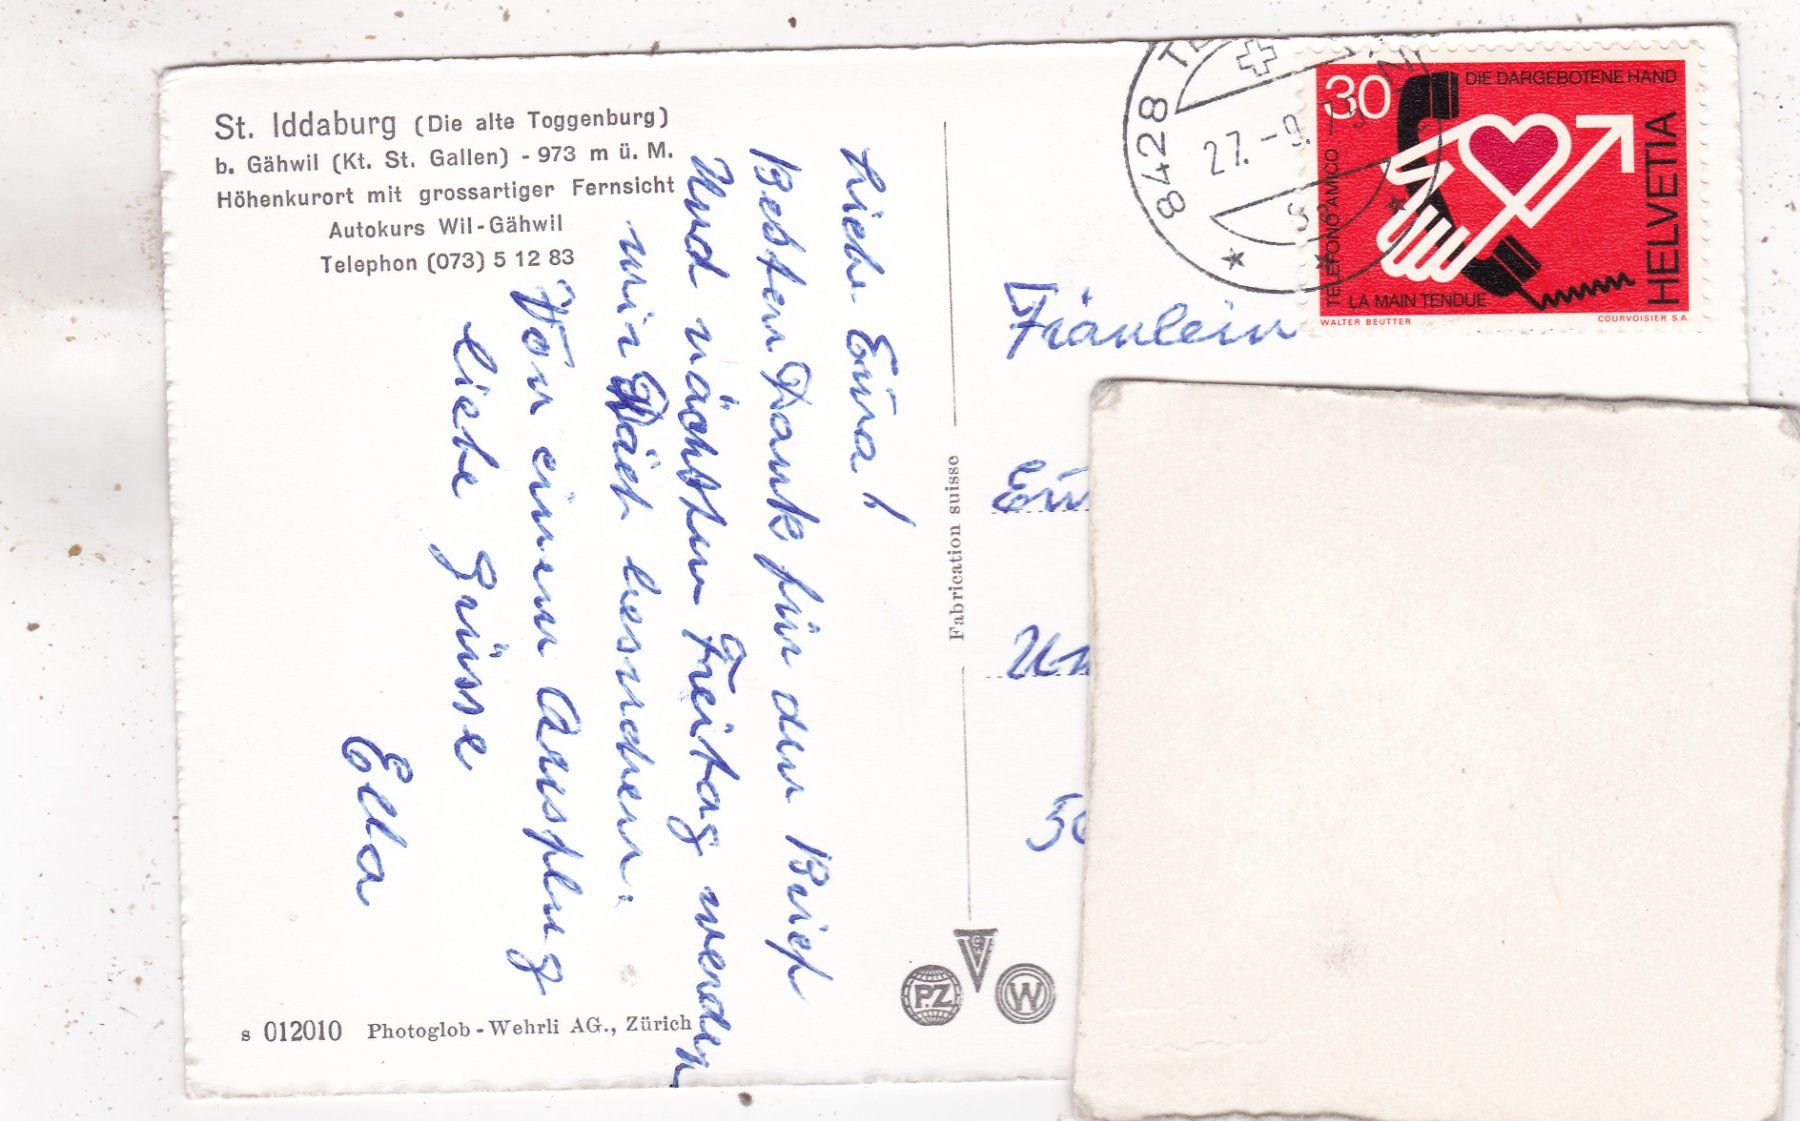 St. Iddaburg (Die alte Toggenburg)
b. Gähwil (Kt. St. Gallen) - 973 m ü. M.
Höhenkurort mit grossartiger Fernsicht
Autokurs Wil-Gähwil
Telephon (073) 5 12 83
Liebe Erna!
Besten Dank für den Brief
Und nächsten Freitag werden
wir besuchen.
Von einem Ausflug
liebe Grüsse
Ella
Fabrication suisse
s 012010 Photoglob-Wehrli AG., Zürich
P.Z
W
8428
27.-9.
30
DIE DARGEBOTENE HAND
TELEFONO AMICO
LA MAIN TENDUE
HELVETIA
WALTER BEUTTER
COURVOISIER S.A.
Fräulein